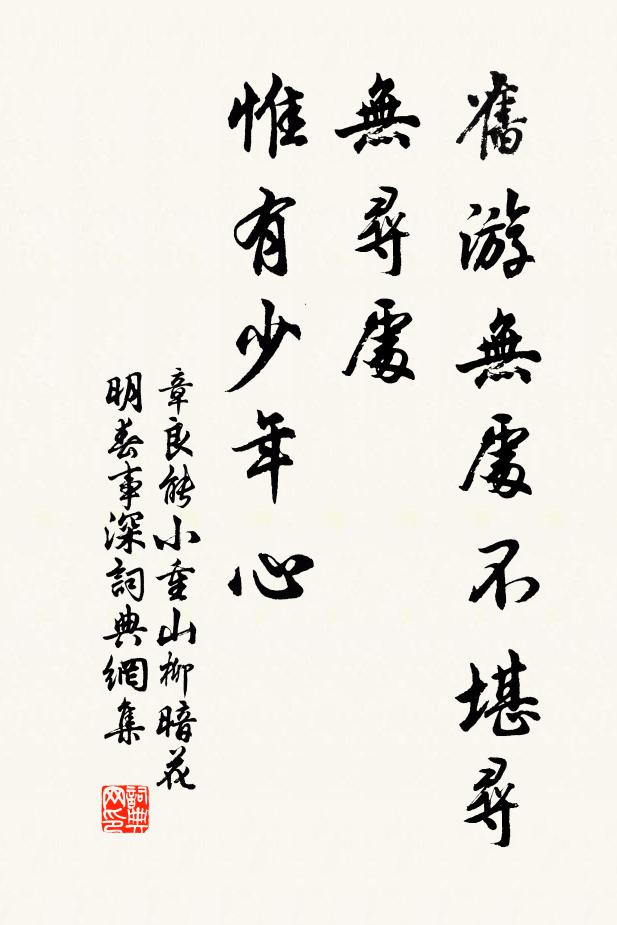 舊游無處不堪尋
無尋處
惟有少年心
章良能小重山柳暗花
明春事深詞典網集
詞典
网印